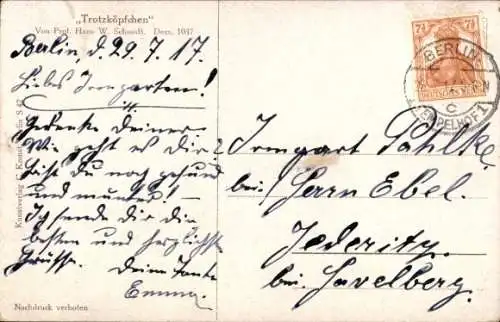 „Trotzköpfchen"
Von Prof. Hans W. Schmidt. Dess. 1037
Berlin, d. 29. 7. 17.
Liebes Irmgartem!
Gedenke Deiner.
Wie geht es Dir?
Bist du noch gesund
und munter! –
Ich sende dir die
besten und herzlichste
Grüsse. Deine Tante
Emma.
Nachdruck verboten
Kunstverlag
7½ 7½
BERLIN
C
TEMPELHOF 1
Irmgart Pahlke.
bei Herrn Ebel.
Jederitz.
bei Havelberg.